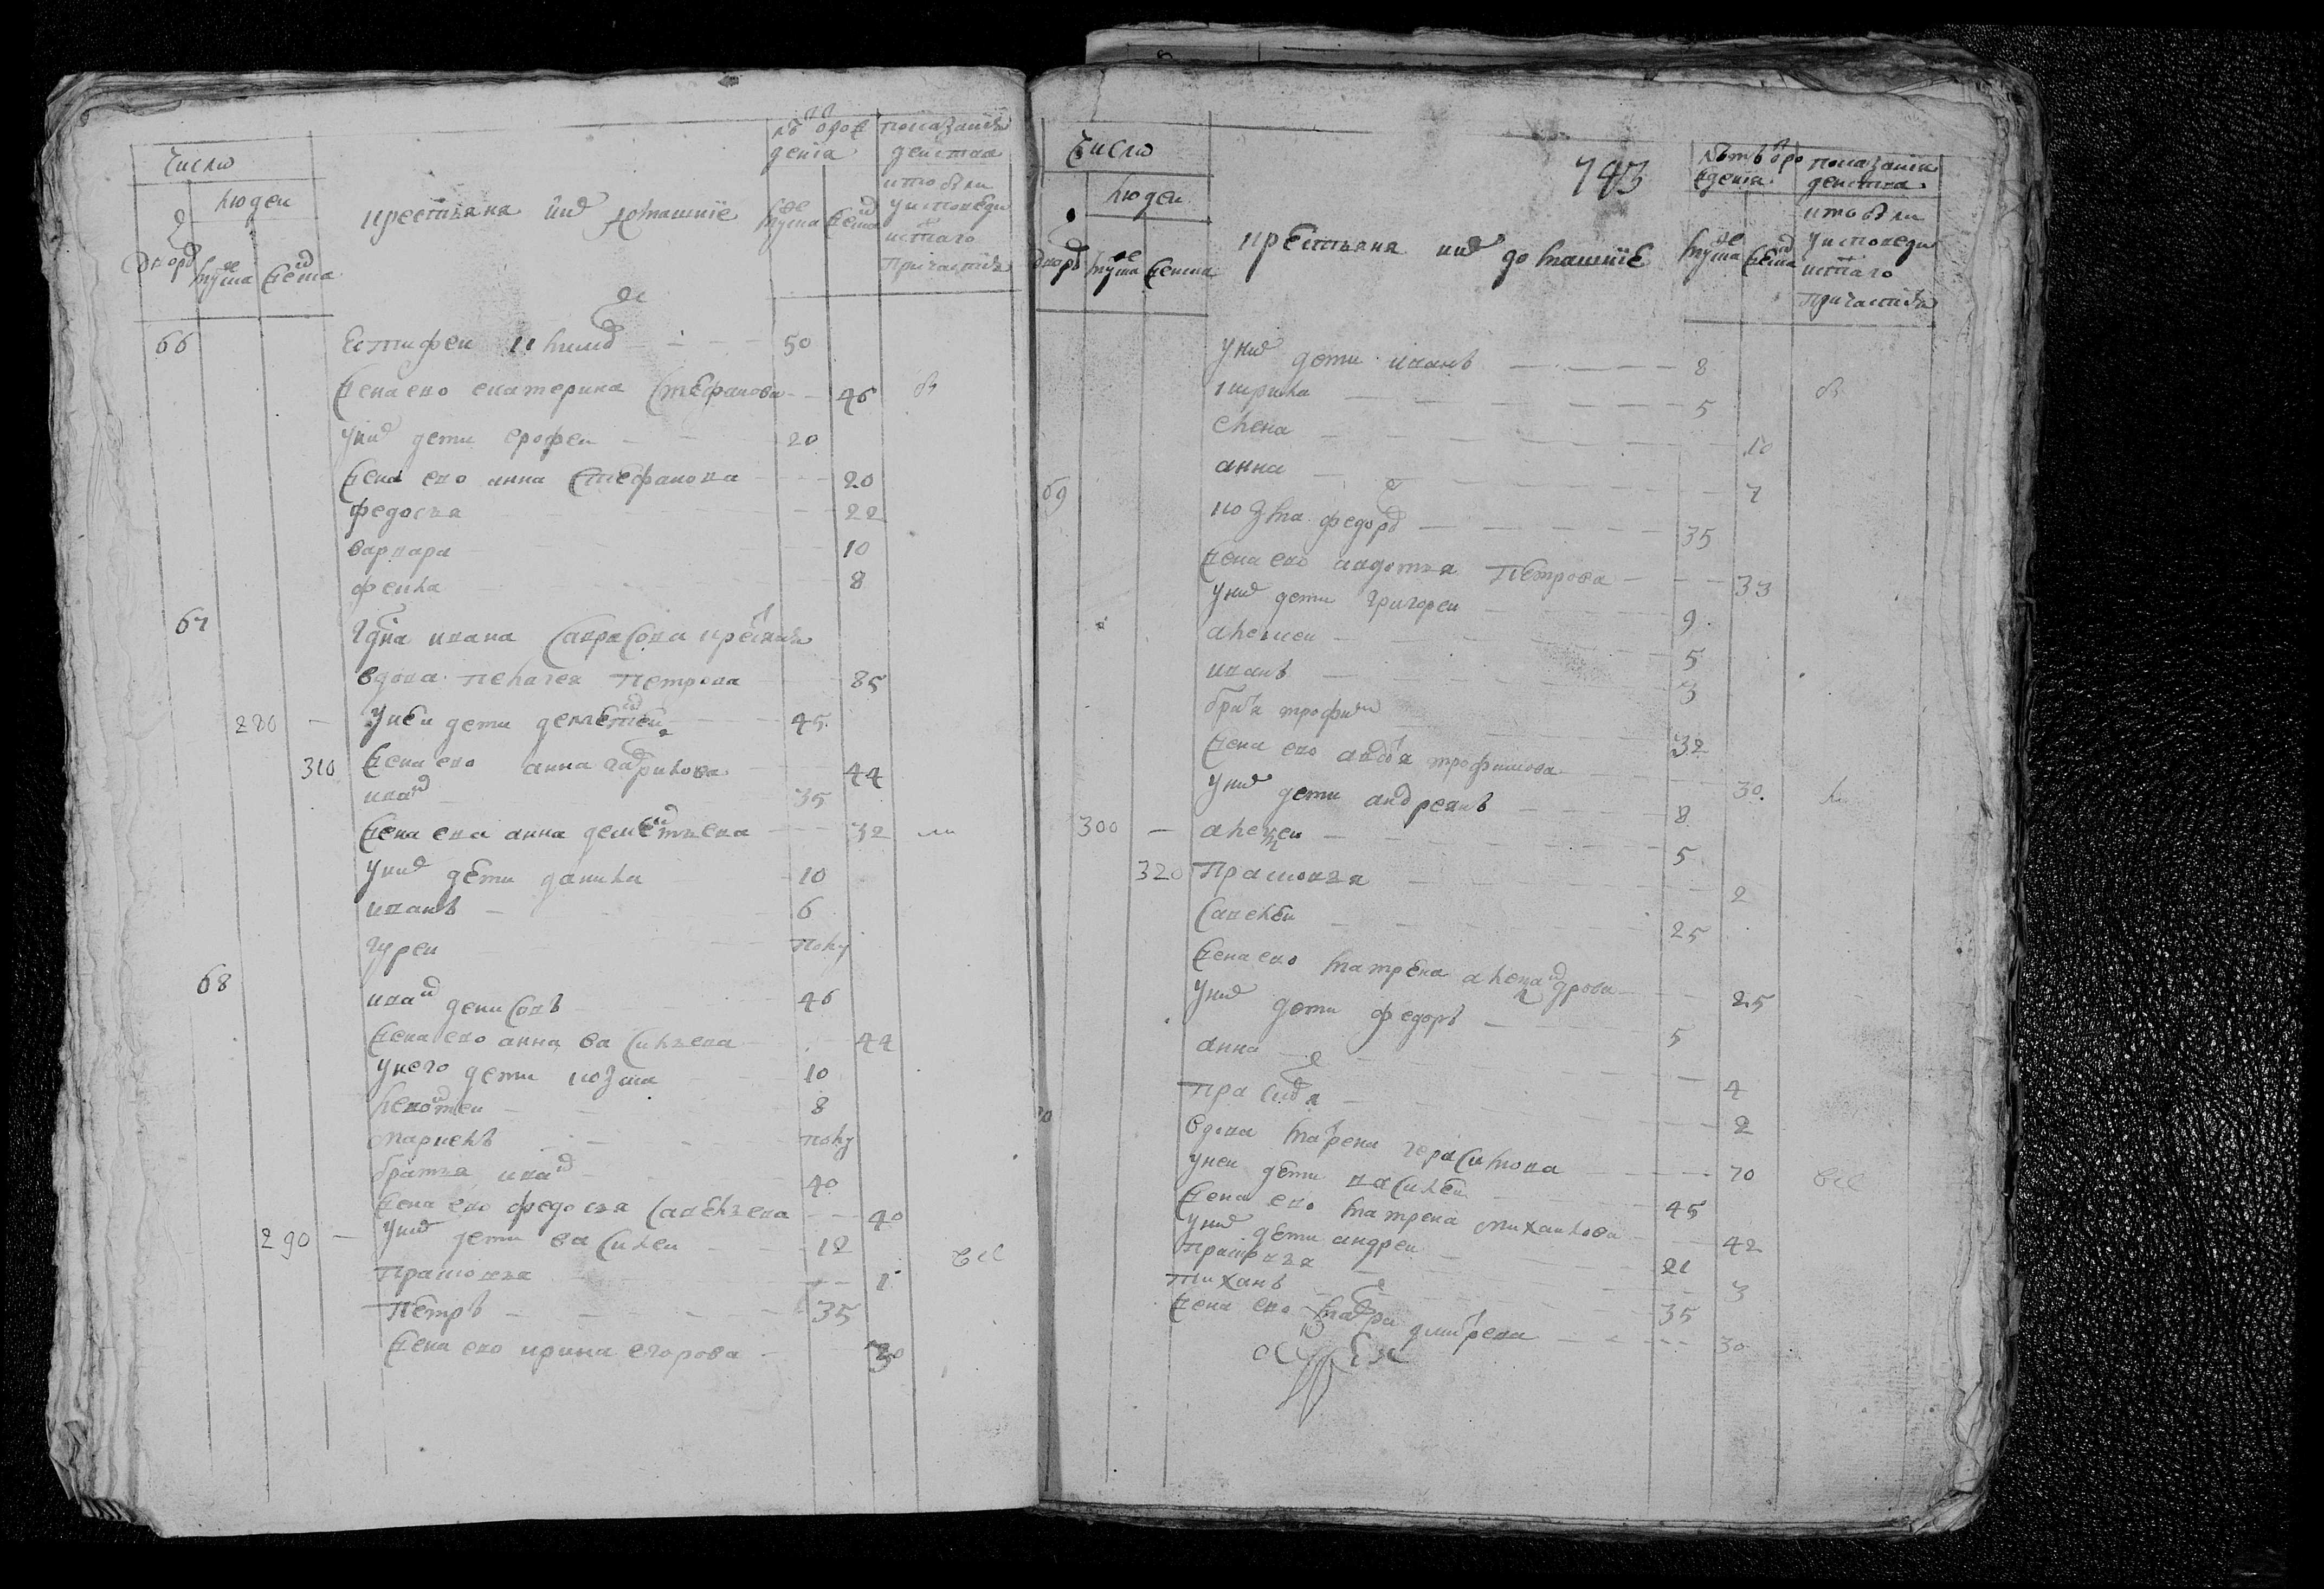 число
людеи
дворъ
мужеска
женска
крестьяня ихъ домашние
лѣтъ от рожденiа
мужеска
женска
показание действа кто был у исповеди и святаго причастия
66
естифеи климовъ 50
жена ево екатерина стефанова 46
у них дети ерофеи 20
жена ево анна стефанова 20
федосья 22
варвара 10
фекла 8
67
гдна ивана саврасова крестьяня
вдова пелагея петрова 85
280 у неи дети дементеи 45
310 жена ево анна гаврилова 44
иван 35
жена ева анна дементьева 32
у них дети данила 10
иванъ 6
гуреи полу
68
иван денисовъ 46
жена ево анна васильева 44
у него дети козма 10
леонтеи 8
маркелъ полу
братья иван 40
жена ево федосья савельева 40
290 у них дети василеи 12
прасковья 1
петръ 35
жена ево ирина егорова 30
число
743
людеи
дворъ
мужеска
женска
крестьяня их домашние
лѣтъ от рождения
мужеска
женска
показания действа кто был у исповеди и святаго причастия
у них дети иванъ 8
кирила 5
елена 10
анна 7
69
козма федоров 35
жена ево авдотья петрова 33
у них дети григореи 9
алексеи 5
иванъ 3
братья трофим 32
жена ево авдотья трофимова 30
у них дети андреянъ 8
300 алексеи 5
320 прасковья 2
савелеи 25
жена ево матрена александрова 25
у них дети федоръ 5
анна 4
2
вдова матрена герасимова 70
у неи дети василеи 45
жена ево матрена михаилова 42
у них дети андреи 21
прасковья 3
тиханъ 35
жена ево дмитрева 30